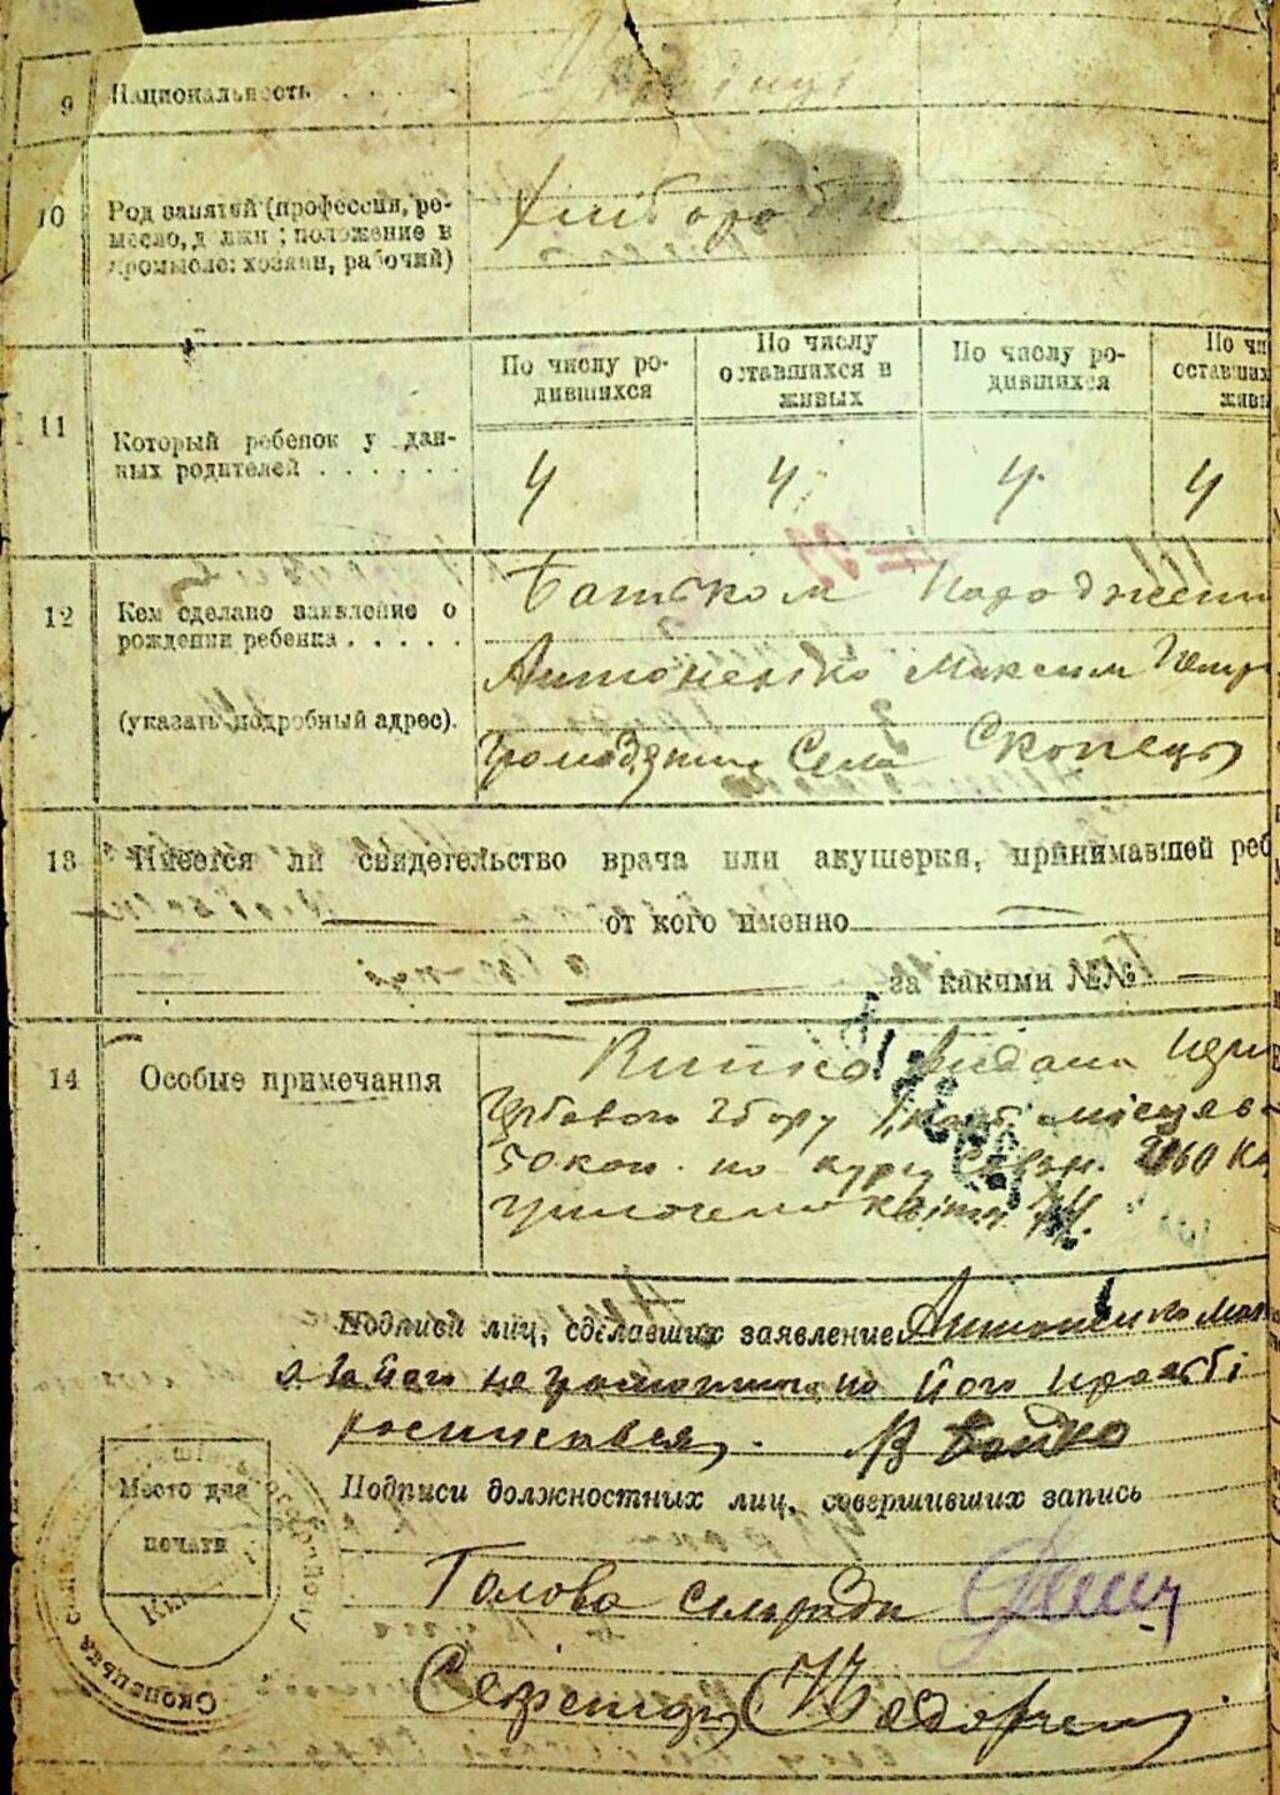 9 Национальность
10 Род занятий (профессия, ре-
месло, должн; положение в
промысле: хозяин, рабочий)
Хлібороби
11 Который ребенок у дан-
ных родителей
По числу ро-
дившихся
По числу
оставшихся в
живых
По числу ро-
дившихся
По чи
оставших
живы
4 4 4 4
12 Кем сделано заявление о
рождении ребенка
(указать подробный адрес).
Батьком
Антоненко Максим Петр
Громадянин Села Скопець
13 Имеется ли свидетельство врача или акушерки, принимавшей реб
от кого именно
за какими №№
14 Особые примечания
видана
Гербового збору місцев
50 коп. по курсу
Подписи лиц, сделавших заявление Антоненко Мак
а за його неграмотного по його прозьбі
росписався. Бойко
Место для
печати
Подписи должностных лиц, совершивших запись
Голова сельради
Секретар
Скопецька